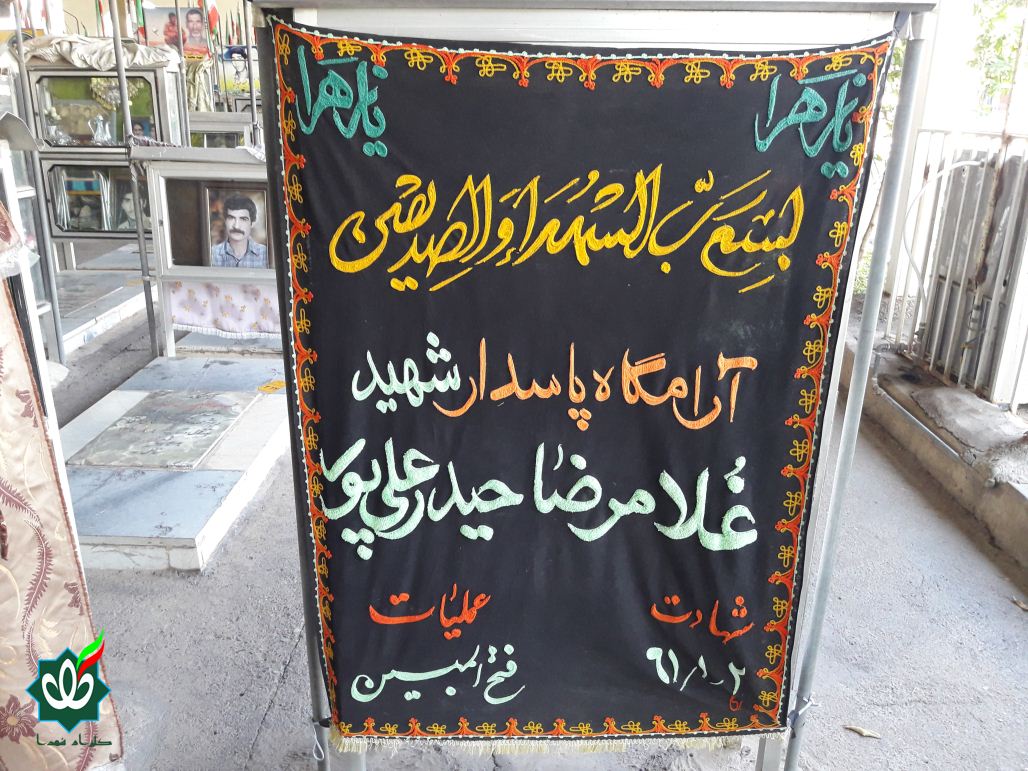 یا زهرا یا زهرا
بسم رب الشهداء و الصدیقین
آرامگاه پاسدار شهید
غلامرضا حیدر علی پور
شهادت عملیات
۶۱/۱/۲ فتح المبین
گلزار شهدا